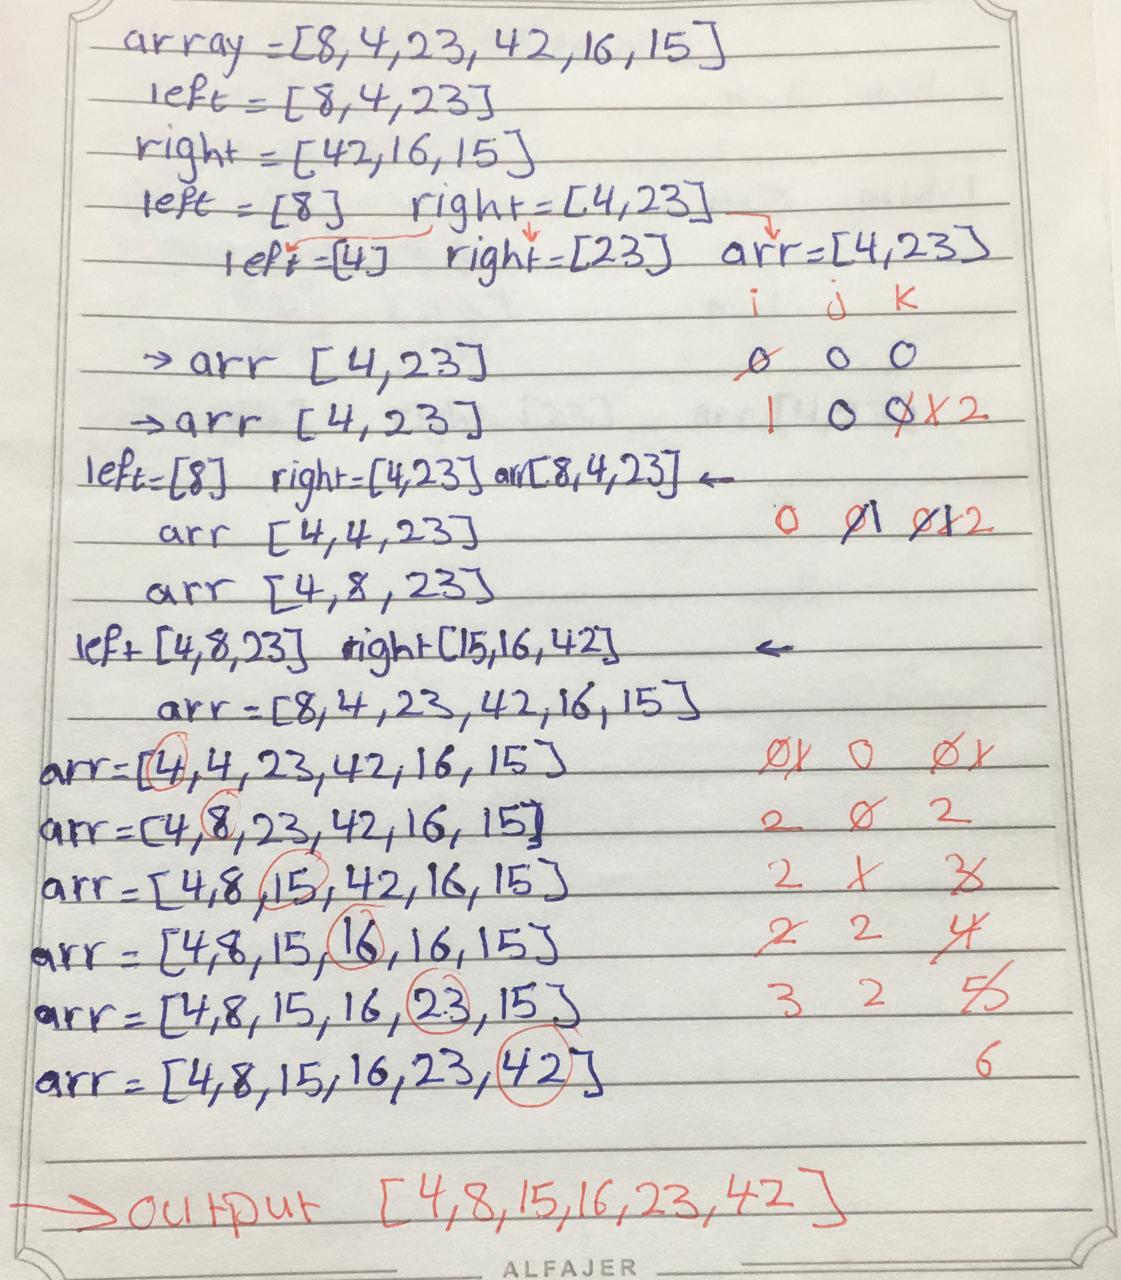 array = [8,4,23, 42,16,15]
left = [8,4,23]
right = [42,16,15]
left = [8] right = [4,23]
left = [4] right = [23] arr = [4,23]
i j k
→ arr [4,23] 0 0 0
→ arr [4,23] 1 0 0 1 2
left = [8] right = [4,23] arr[8,4,23] ←
arr [4,4,23] 0 0 1 0 1 2
arr [4,8,23]
left [4,8,23] right [15,16,42] ←
arr = [8,4,23,42,16,15]
arr = [4,4,23,42,16,15] 0 1 0 0 1
arr = [4,8,23,42,16,15] 2 0 2
arr = [4,8,15,42,16,15] 2 1 3
arr = [4,8,15,16,16,15] 2 2 4
arr = [4,8,15,16,23,15] 3 2 5
arr = [4,8,15,16,23,42] 6
→ output [4,8,15,16,23,42]
ALFAJER